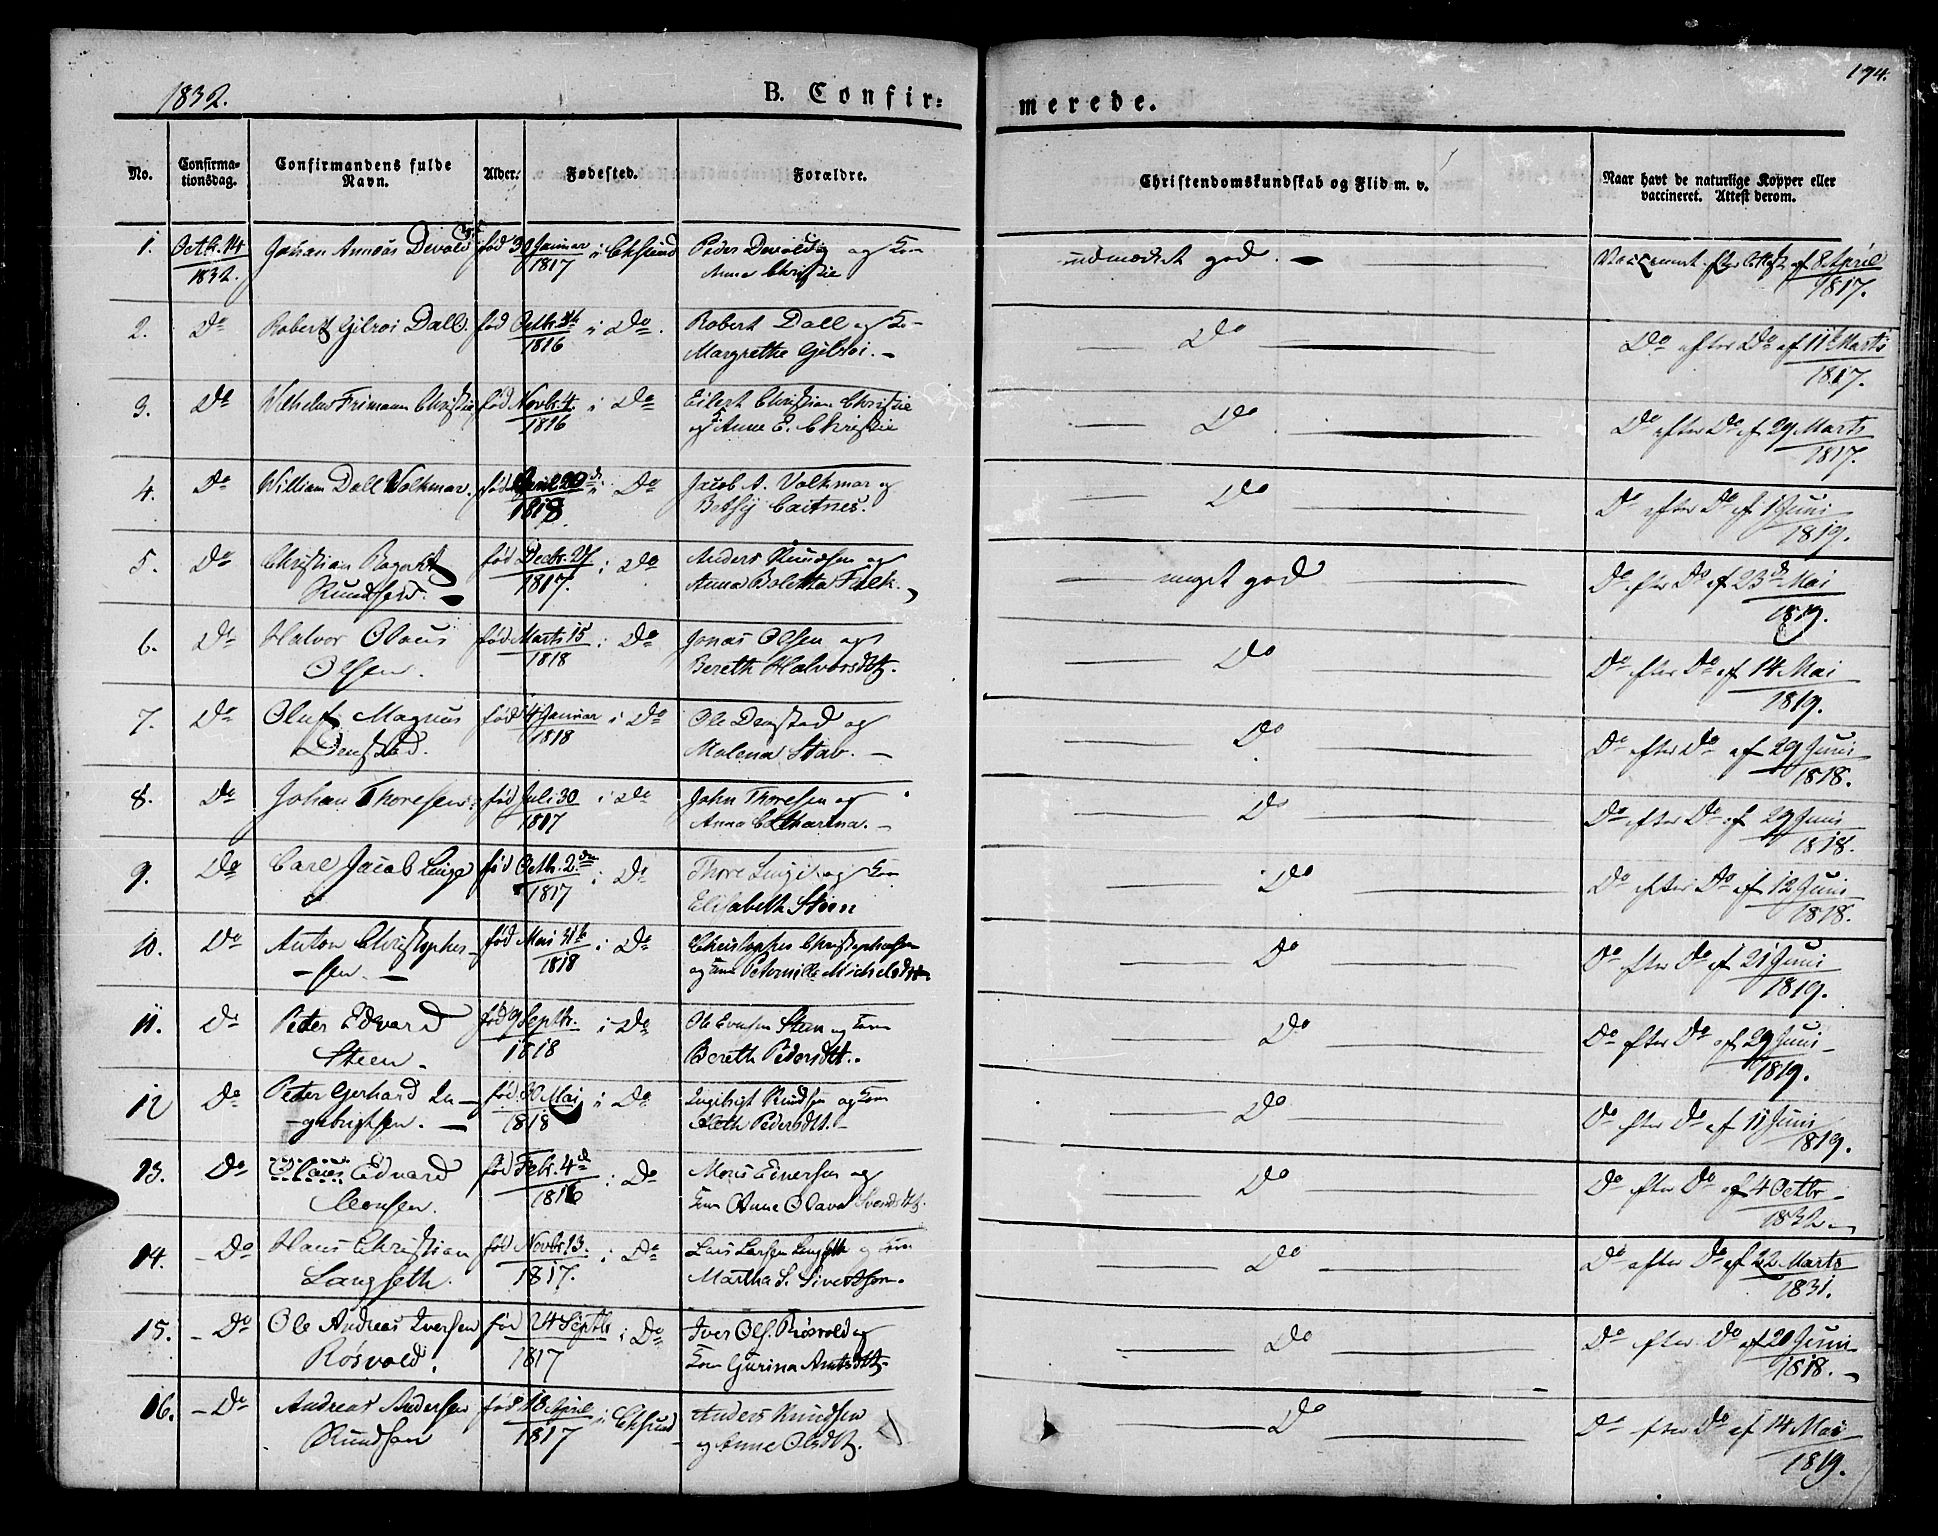 1832.
B. Confir-
merede.
194.
No.
Confirma-
tionsdag.
Confirmandens fulde
Navn.
Alder.
Fødested.
Forældre.
Christendomskundskab og Flid m. v.
Naar havt de naturlige Kopper eller
vaccineret. Attest derom.
1. Octb. 14 Johan Anneus Devold fød 30 Januar i Peder Devold og
1832. 1817 Anna Christie
udmærket god. Vaccineret efter Attest af 8 April
1817.
2. Do Robert Gilroi Dall. fød Octb. 1816 i Do. Robert Dall og
Margrethe Gilroi.
Do Do efter Do af 11 Marts
1817.
3. Do Wilhelm Frimann Christie fød Novbr. 4. i Do Eilert Christian Christie
1816 og Anne E. Christie
Do Do efter Do af 29 Marts
1817.
4. Do William Dall Volkmar. fød April 20 i Do Jacob A. Volkmar og
1818. Betsy Caitnes.
Do Do efter Do af 1 Juni
1819.
5. Do Christian fød Decbr. 27 i Do Anders Knudsen og
Knudsen. 1817. Anna Boletta Falk.
meget god Do efter Do af 23 Mai
1819.
6. Do Halvor Olaus fød Marts 15 i Do Jonas Olsen og
Olsen. 1818 Bereth Halvorsdtr.
Do Do efter Do af 14 Mai
1819.
7. Do Oluf Magnus fød 4 Januar i Do Ole Denstad og
Denstad. 1818 Malena Stav.
Do Do efter Do af 29 Juni
1818.
8. Do Johan Thoresen fød Juli 30 i Do John Thoresen og
1817 Anna Catharina.
Do Do efter Do af 29 Juni
1818.
9. Do Carl Jacob Linge fød Octb. 2 i Do Thore Linge og
1817 Elisabeth Steen
Do Do efter Do af 12 Juni
1818.
10. Do Anton Christophersen fød Mai 31 i Do Christopher Christophersen
1818 og Peternille Michelsdtr.
Do Do efter Do af 21 Juni
1819.
11. Do Peter Edvard fød 9 Septbr. i Do Ole Evensen Steen og
Steen. 1818 Bereth Pedersdtr.
Do Do efter Do af 29 Juni
1819.
12 Do Peter Gerhard In- fød 30 Mai i Do Ingebrigt Knudsen og
gebrigtsen. 1818 Pedersdtr.
Do Do efter Do af 11 Juni
1819.
13. Do Claus Edvard fød Febr. 4 i Do Mons Einersen og
Monsen. 1816 Anne Olava
Do Do efter Do af 4 Octbr
1832
14. Do Hans Christian fød Novbr. 13. i Do Lars Larsen Langseth og
Langseth. 1817. Martha S. Sivertsen.
Do Do efter Do af 22 Marts
1831.
15. Do Ole Andreas Iversen fød 24 Septb i Do Iver Ols. Røsvold og
Røsvold. 1817 Gurina Amtsdtr.
Do Do efter Do af 20 Juni
1818.
16. Do Andreas Andersen fød 18 April i Anders Knudsen
Knudsen 1817 og Anne Olsdtr.
Do Do efter Do af 14 Mai
1819.